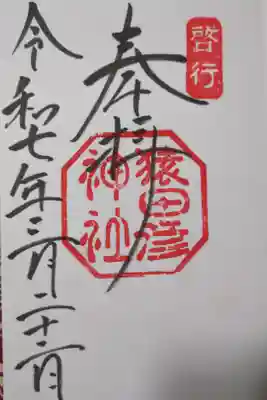 啓行
奉拝
猿田彦
神社
令和七年三月二十日